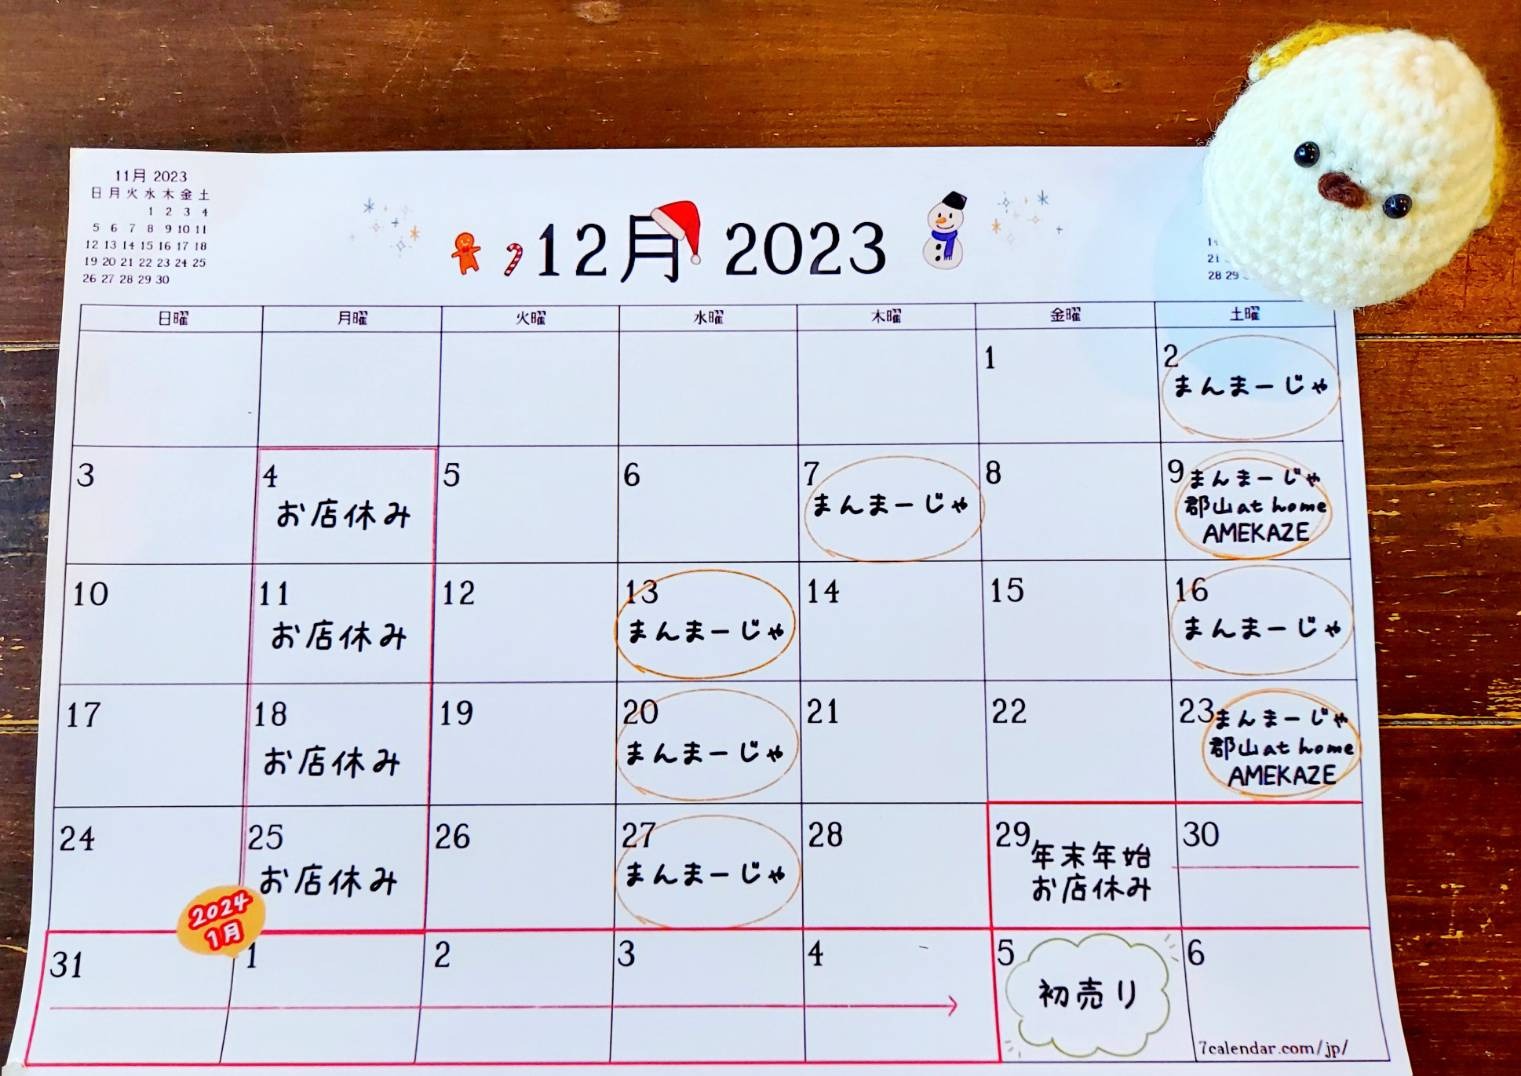 11月 2023
日 月 火 水 木 金 土
1 2 3 4
5 6 7 8 9 10 11
12 13 14 15 16 17 18
19 20 21 22 23 24 25
26 27 28 29 30
12月 2023
28 29
日曜 月曜 火曜 水曜 木曜 金曜 土曜
1
2
まんまーじゃ
3
4
お店休み
5
6
7
まんまーじゃ
8
9
まんまーじゃ
郡山at home
AMEKAZE
10
11
お店休み
12
13
まんまーじゃ
14
15
16
まんまーじゃ
17
18
お店休み
19
20
まんまーじゃ
21
22
23
まんまーじゃ
郡山at home
AMEKAZE
24
25
お店休み
26
27
まんまーじゃ
28
29
年末年始
お店休み
30
2024
1月
31
1
2
3
4
5
初売り
6
7calendar.com/jp/